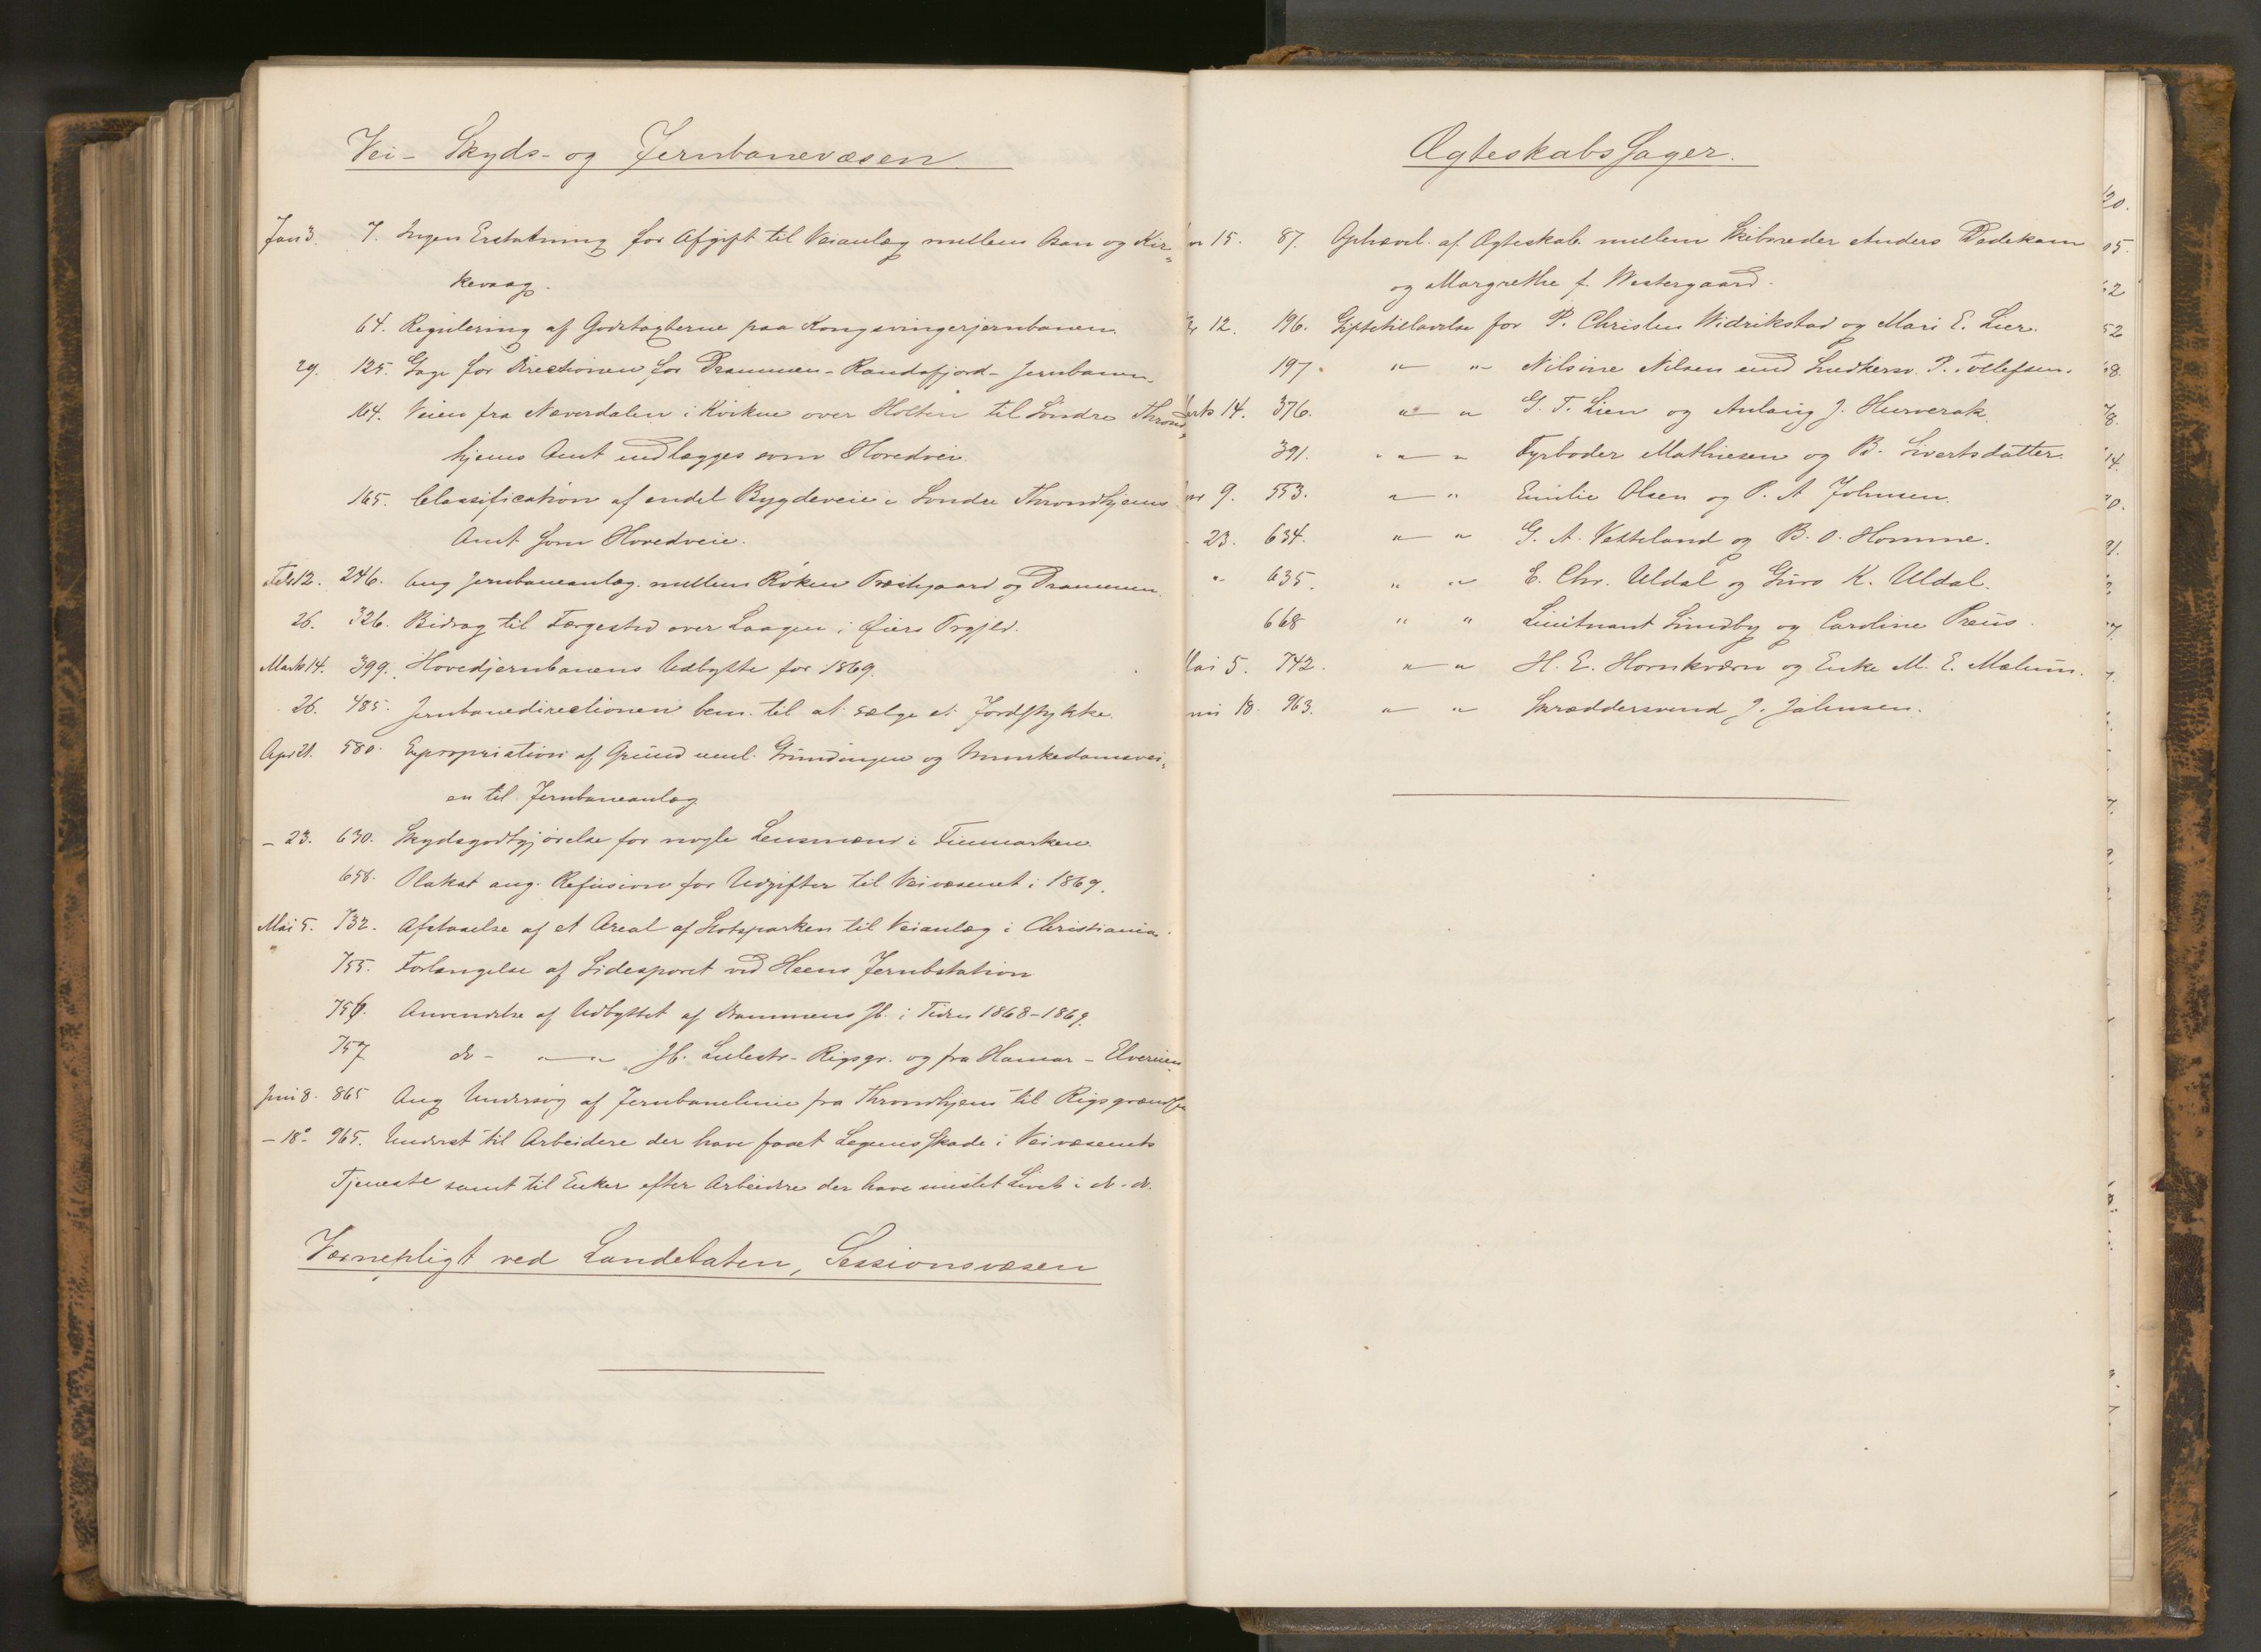 Vei- Skyds- og Jernbanevæsen
Jan 3. 7. Ingen Erstatning for Afgift til Veianlæg mellem Aan og Kir„
kevaag.
64. Regulering af Godstagterne paa Kongsvingerjernbanen
29. 125. Gage for Directionen for Drammen-Randsfjord-Jernbanen.
164. Veien fra Næverdalen i Kvikne over Holten til Søndre Thrond„
hjems Amt indlægges som Hovedvei.
165. Classification af endel Bygdeveie i Søndre Throndhjems
Amt som Hovedveie.
Febr 12. 246. Ang Jernbaneanlæg. mellem Røken Præstegaard og Drammen.
26. 326. Bidrag til Færgested over Laagen i Øiers Prgjld.
Marts 14. 399. Hovedjernbanens Udbytte for 1869.
26. 485. Jernbanedirectionen bem. til at sælge et Jordstykke.
Apr 21. 580. Expropriation af Grund meml. Grændingen og Munkedamsvei„
en til Jernbaneanlæg
- 23. 630. Skydsgodtgjørelse for nogle Lensmænd i Finmarken.
658. Plakat ang. Refusion for Udgifter til Veivæsenet i 1869.
Mai 5. 732. Afstaaelse af et Areal af Slotsparken til Veianlæg i Christiania.
755. Forlængelse af Sidesporet ved Heens Jernbstation
756. Anvendelse af Udbyttet af Drammens Jb. i Tiden 1868-1869.
757 do - „ — „ Jb. Lillestr- Rigsgr. og fra Hamar - Elverum
Juni 8. 865 Ang Undersøg af Jernbanelinie fra Throndhjem til Rigsgrændsen
- 18. 965. Underst til Arbeidere der have faaet Legems Skade i Veivæsenets
Tjeneste samt til Enker efter Arbeidere der have mistet Livet i do. do.
Værnepligt ved Landetaten, Sessionsvæsen
Ægteskabs Sager.
15. 87. Ophævel. af Ægteskab mellem Skibsreder Anders Dedekam
og Margrethe f. Westergaard.
12. 196. Giftetilladelse for P. Christen Widrikstad og Mari E. Lier.
197. „ — „ Nilsine Nilsen med Snedkersv. P. Tollefsen.
Marts 14. 376. „ — „ G. T. Lien og Anlaug J. Hurverak.
391. „ — „ Fyrbøder Mathiesen og B. Sivertsdatter.
9. 553. „ — „ Emilie Olsen og P. A Johnsen.
- 23. 634. „ — „ G. A. Vetteland og B. O. Homme.
„ 635. „ „ E. Chr. Uldal og Guro K. Uldal.
668 „ „ Lieutnant Lundby og Caroline Preus.
Mai 5. 742. „ — „ H. E. Hornkværn og Enke M. E. Mælum.
18. 963. „ — „ Skræddersvend J. Johnsen.